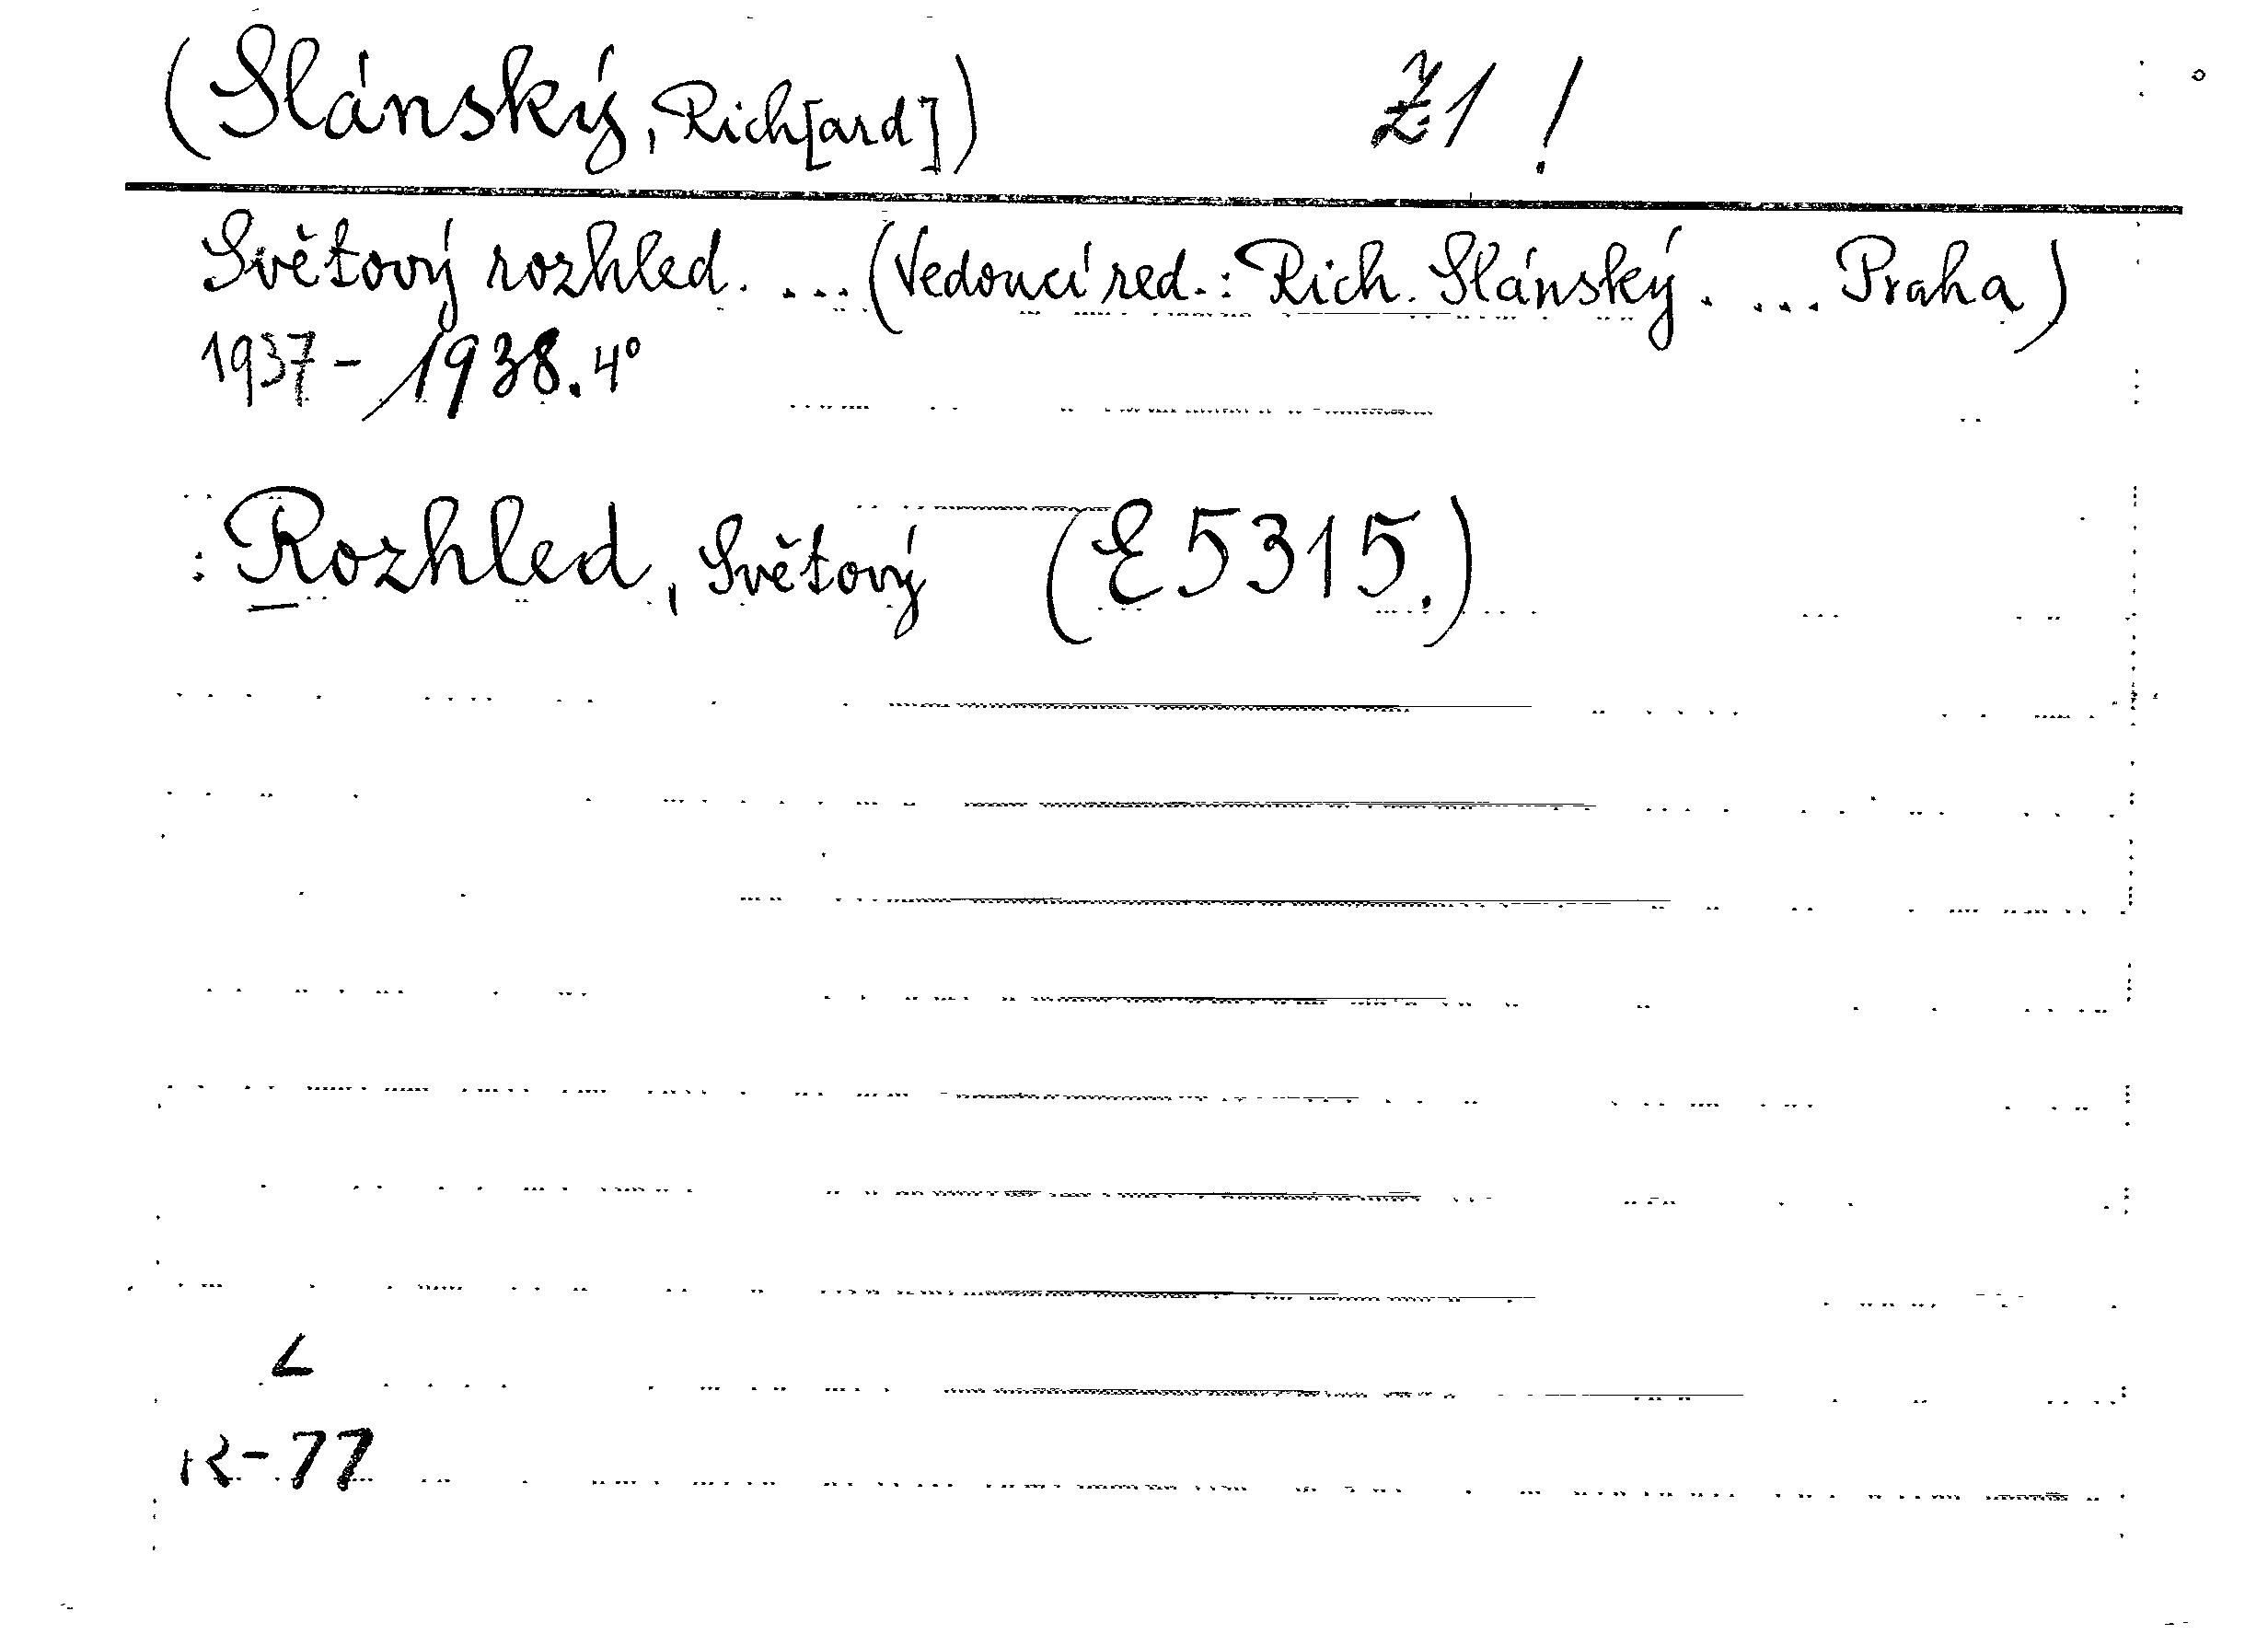 (Slánský, Rich[ard]) Ž1 !
Světový rozhled. ... (Vedoucí red.: Rich. Slánský. ... Praha)
1937-1938. 4°
: Rozhled, Světový (E 5315.)
L
R-77